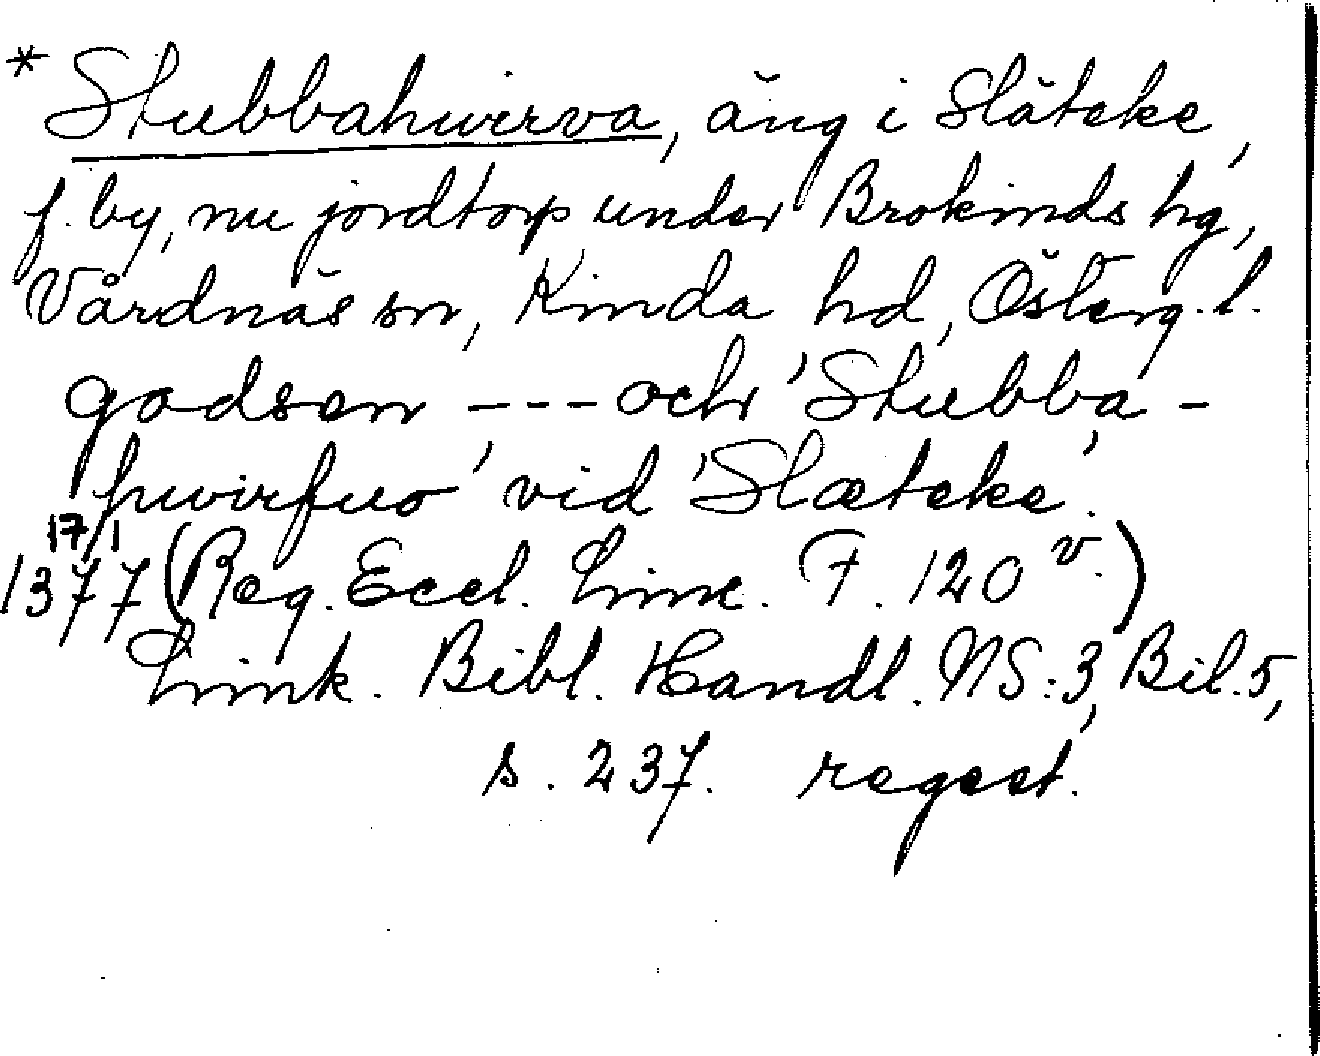 * Stubbahwirva, äng i Släteke,
f. by, nu jordtorp under Brokinds hg,
Vårdnäs sn, Kinda hd, Österg. l.
godsen --- och 'Stubba-
hwirfuo' vid 'Slæteke'.
17/1
1377 (Reg. Eccl. Linc. F. 120 v.)
Link. Bibl. Handl. NS:3, Bil. 5,
s. 237. regest.